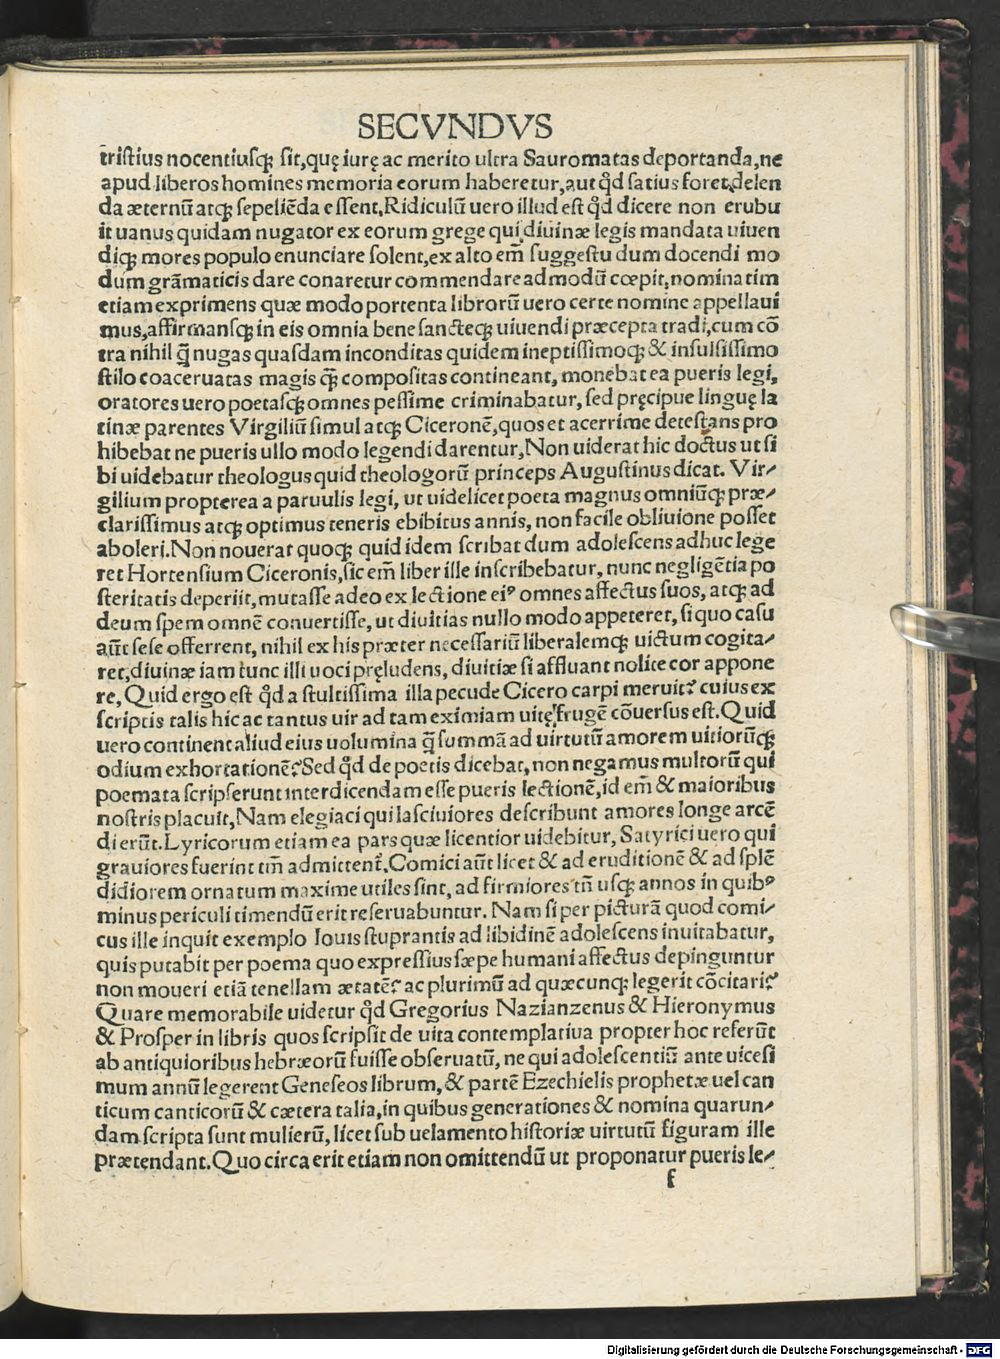 SECVNDVS
tristius nocentiusqꝫ sit,quę iurę ac merito ultra Sauromatas deportanda,ne
apud liberos homines memoria eorum haberetur,aut qď satius foret,delen
da æternū atqꝫ sepeliēda essent,Ridiculū uero illud est qď dicere non erubu
it uanus quidam nugator ex eorum grege qui diuinæ legis mandata uiuen
diqꝫ mores populo enunciare solent,ex alto em̄ suggestu dum docendi mo
dum grāmaticis dare conaretur commendare ad modū cœpit,nominatim
etiam exprimens quæ modo portenta librorū uero certe nomine appellaui
mus,affirmansqꝫ in eis omnia bene sancteqꝫ uiuendi præcepta tradi,cum cō
tra nihil q̄ nugas quasdam inconditas quidem ineptissimoqꝫ & insulsissimo
stilo coaceruatas magis q̄ compositas contineant, monebat ea pueris legi,
oratores uero poetasqꝫ omnes pessime criminabatur, sed pręcipue linguę la
tinæ parentes Virgiliū simul atqꝫ Ciceronē,quos et acerrime detestans pro
hibebat ne pueris ullo modo legendi darentur,Non uiderat hic doctus ut si
bi uidebatur theologus quid theologorū princeps Augustinus dicat. Vir⸗
gilium propterea a paruulis legi, ut uidelicet poeta magnus omniūqꝫ præ⸗
clarissimus atqꝫ optimus teneris ebibitus annis, non facile obliuione posset
aboleri.Non nouerat quoqꝫ quid idem scribat dum adolescens adhuc lege
ret Hortensium Ciceronis,sic em̄ liber ille inscribebatur, nunc negligētia po
steritatis deperiit,mutasse adeo ex lectione eiꝰ omnes affectus suos, atqꝫ ad
deum spem omnē conuertisse, ut diuitias nullo modo appeteret, si quo casu
aūt sese offerrent, nihil ex his præter necessariū liberalemqꝫ uictum cogita⸗
ret,diuinæ iam tunc illi uoci pręludens, diuitiæ si affluant nolite cor appone
re, Quid ergo est qď a stultissima illa pecude Cicero carpi meruit? cuius ex
scriptis talis hic ac tantus uir ad tam eximiam uitę frugē cōuersus est.Quid
uero continent aliud eius uolumina q̄ summā ad uirtutū amorem uitiorūqꝫ
odium exhortationē? Sed qď de poetis dicebat, non negamus multorū qui
poemata scripserunt interdicendam esse pueris lectionē,id em̄ & maioribus
nostris placuit, Nam elegiaci qui lasciuiores describunt amores longe arcē
di erūt.Lyricorum etiam ea pars quæ licentior uidebitur, Satyrici uero qui
grauiores fuerint tm̄ admittent᷑.Comici aūt licet & ad eruditionē & ad splē
didiorem ornatum maxime utiles sint, ad firmiores tn̄ usqꝫ annos in quibꝰ
minus periculi timendū erit reseruabuntur. Nam si per picturā quod comi⸗
cus ille inquit exemplo Iouis stuprantis ad libidinē adolescens inuitabatur,
quis putabit per poema quo expressius sæpe humani affectus depinguntur
non moueri etiā tenellam ætatē? ac plurimū ad quæcunqꝫ legerit cōcitari?
Quare memorabile uidetur qď Gregorius Nazianzenus & Hieronymus
& Prosper in libris quos scripsit de uita contemplatiua propter hoc referūt
ab antiquioribus hebræorū fuisse obseruatū, ne qui adolescentiū ante uicesi
mum annū legerent Geneseos librum, & partē Ezechielis prophetæ uel can
ticum canticorū & cætera talia,in quibus generationes & nomina quarun⸗
dam scripta sunt mulierū, licet sub uelamento historiæ uirtutū figuram ille
prætendant.Quo circa erit etiam non omittendū ut proponatur pueris le⸗
f
Digitalisierung gefördert durch die Deutsche Forschungsgemeinschaft - DFG